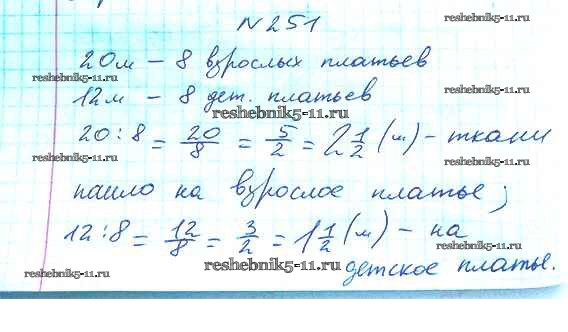 N 251
20м – 8 взрослых платьев
reshebnik5-11.ru reshebnik5-11.ru
12м – 8 дет. платьев
reshebnik5-11.ru
20:8 = 20/8 = 5/2 = 2 1/2 (м) – ткани
reshebnik5-11.ru reshebnik5-11.ru
пошло на взрослое платье;
reshebnik5-11.ru
12:8 = 12/8 = 3/2 = 1 1/2 (м) – на
reshebnik5-11.ru reshebnik5-11.ru reshebnik5-11.ru
детское платье.